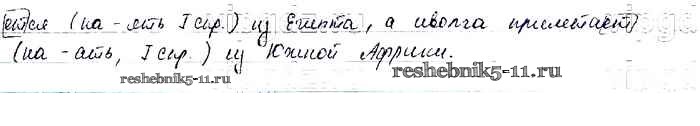 ется (на - ять I спр.) из Египта, а иволга прилетает
(на - ать, I спр.) из Южной Африки.
reshebnik5-11.ru
reshebnik5-11.ru